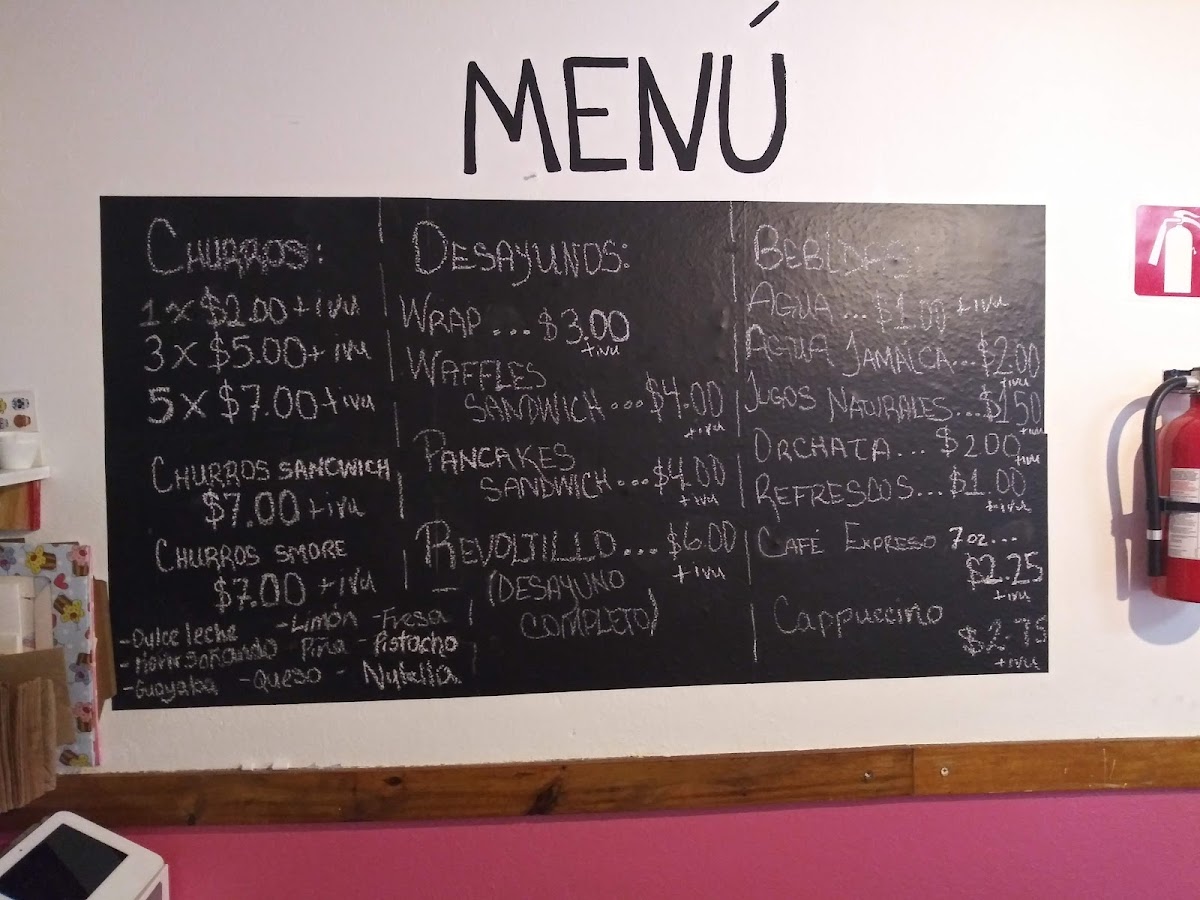 MENÚ
CHURROS:
1 x $2.00 + ivu
3 x $5.00 + ivu
5 x $7.00 + ivu
CHURROS SANCWICH
$7.00 + ivu
CHURROS SMORE
$7.00 + ivu
- Dulce leche - Limón - Fresa
- Morir soñando Piña - Pistacho
- Guayaba - Queso - Nutella
DESAYUNOS:
WRAP ... $3.00
+ivu
WAFFLES
SANDWICH ... $4.00
+ivu
PANCAKES
SANDWICH ... $4.00
+ivu
REVOLTILLO ... $6.00
+ivu
(DESAYUNO
COMPLETO)
BEBIDAS:
AGUA ... $1.00 +ivu
AGUA JAMAICA... $2.00
+ivu
JUGOS NATURALES... $1.50
+ivu
ORCHATA... $2.00
+ivu
REFRESCOS... $1.00
+ivu
CAFÉ EXPRESO 7oz...
$2.25
+ivu
Cappuccino
$2.75
+ivu